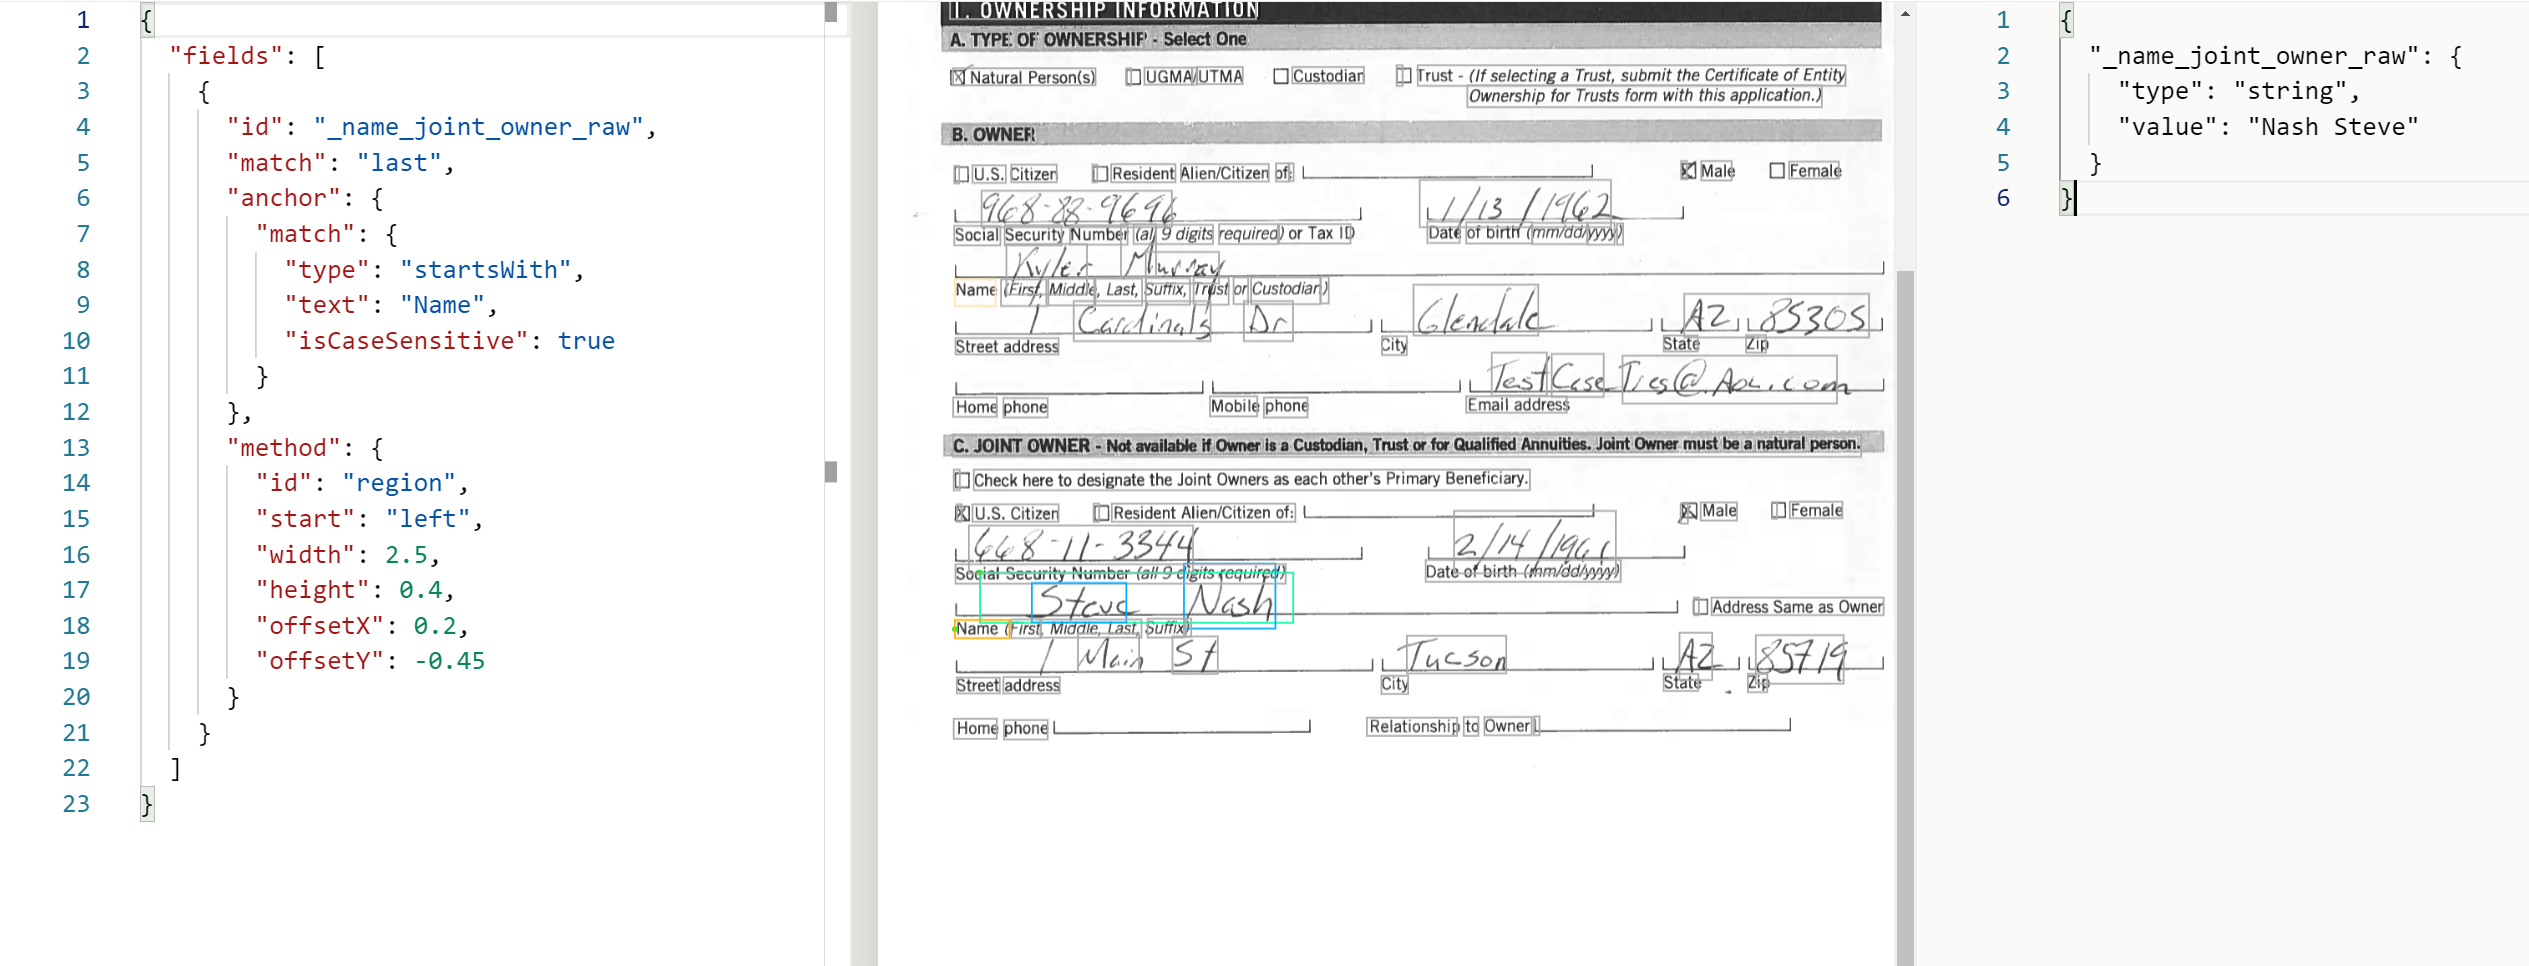 1 {
2 "fields": [
3 {
4 "id": "_name_joint_owner_raw",
5 "match": "last",
6 "anchor": {
7 "match": {
8 "type": "startsWith",
9 "text": "Name",
10 "isCaseSensitive": true
11 }
12 },
13 "method": {
14 "id": "region",
15 "start": "left",
16 "width": 2.5,
17 "height": 0.4,
18 "offsetX": 0.2,
19 "offsetY": -0.45
20 }
21 }
22 ]
23 }
1. OWNERSHIP INFORMATION
A. TYPE OF OWNERSHIP - Select One
Natural Person(s) UGMA/UTMA Custodian Trust - (If selecting a Trust, submit the Certificate of Entity
Ownership for Trusts form with this application.)
B. OWNER
U.S. Citizen Resident Alien/Citizen of: Male Female
968-88-9696 1/13/1962
Social Security Number (all 9 digits required) or Tax ID Date of birth (mm/dd/yyyy)
Kyler Murray
Name (First, Middle, Last, Suffix, Trust or Custodian)
1 Cardinals Dr Glendale AZ 85305
Street address City State Zip
TestCase_Ties@Aol.com
Home phone Mobile phone Email address
C. JOINT OWNER - Not available if Owner is a Custodian, Trust or for Qualified Annuities. Joint Owner must be a natural person.
Check here to designate the Joint Owners as each other's Primary Beneficiary.
U.S. Citizen Resident Alien/Citizen of: Male Female
668-11-3344 2/14/1961
Social Security Number (all 9 digits required) Date of birth (mm/dd/yyyy)
Steve Nash Address Same as Owner
Name (First, Middle, Last, Suffix)
1 Main St Tucson AZ 85719
Street address City State Zip
Home phone Relationship to Owner
1 {
2 "_name_joint_owner_raw": {
3 "type": "string",
4 "value": "Nash Steve"
5 }
6 }